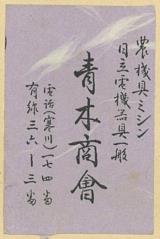 農機具ミシン
日立電機器具一般
青木商會
電話(寒川)一七四番
有線三六ー三番